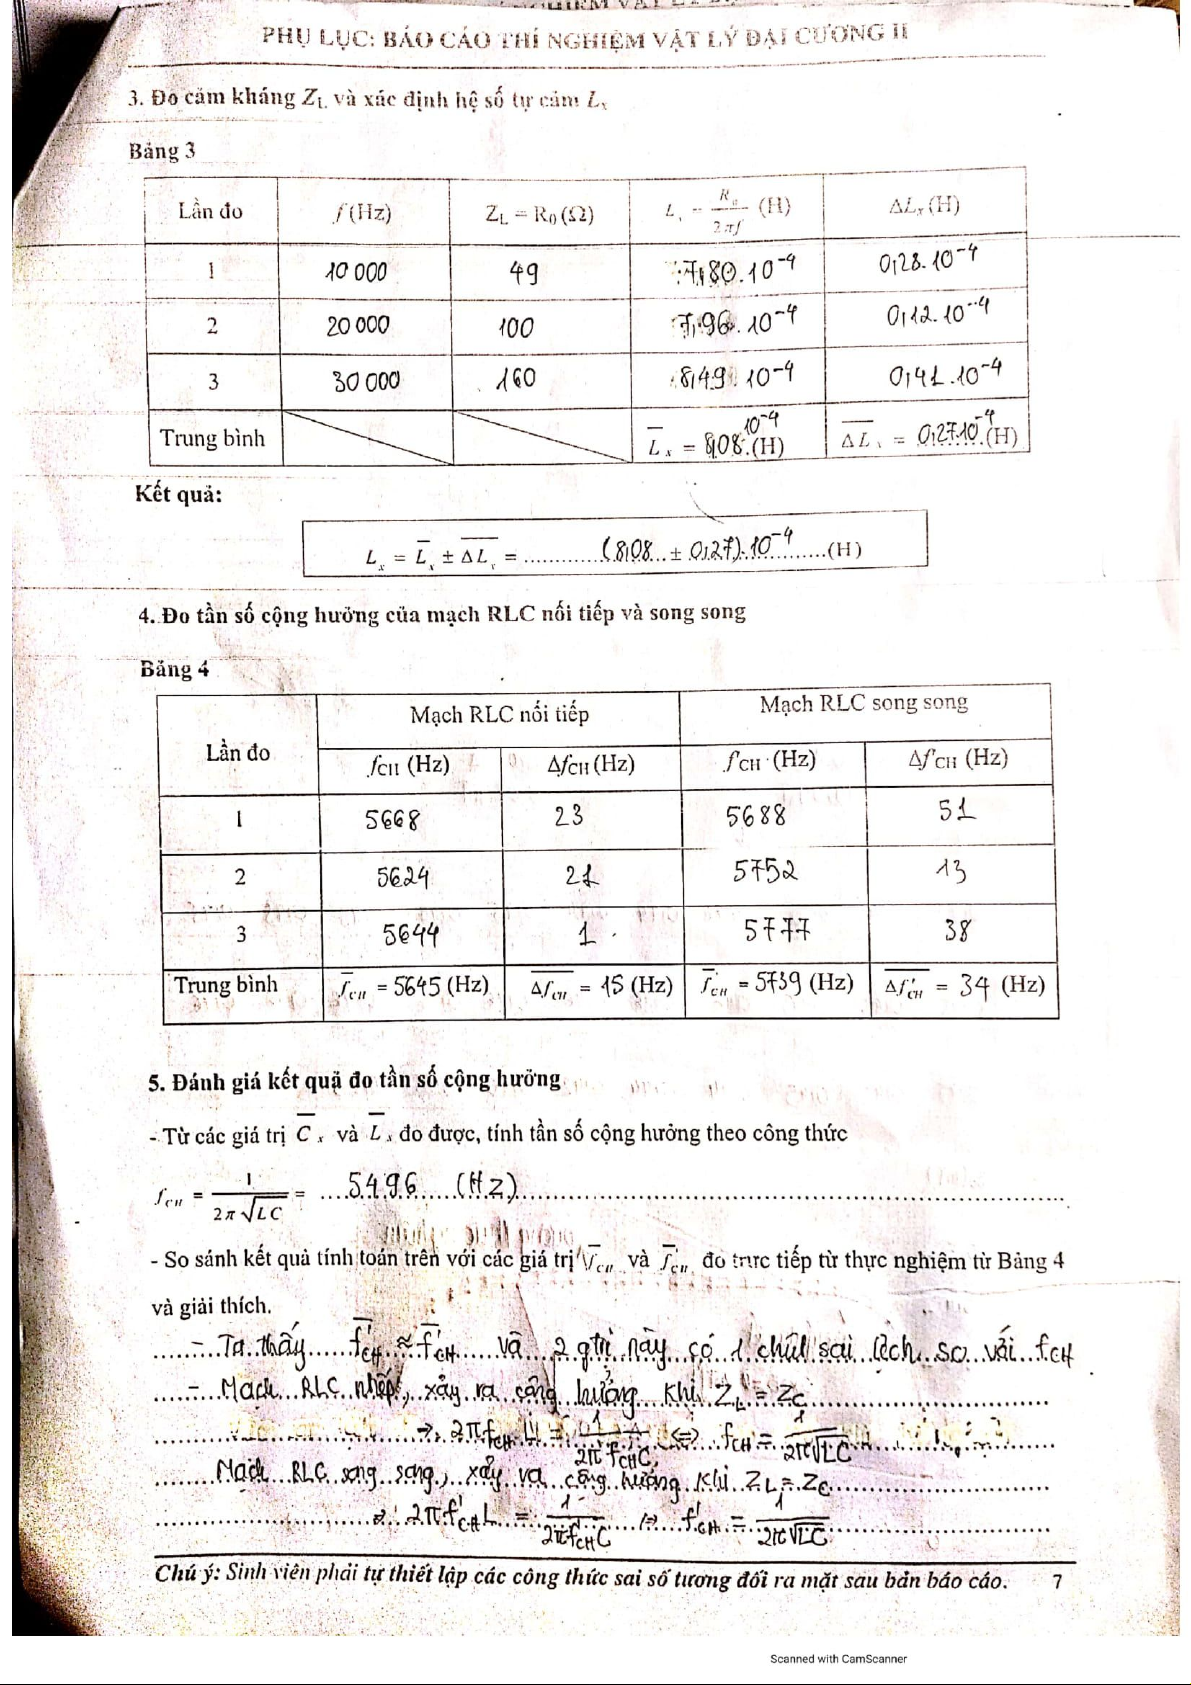 PHỤ LỤC: BÁO CÁO THÍ NGHIỆM VẬT LÝ ĐẠI CƯƠNG II
3. Đo cảm kháng ZL và xác định hệ số tự cảm Lx
Bảng 3
Lần đo f (Hz) ZL = R0 (Ω) Lx = R0 / 2πf (H) ΔLx (H)
1 10 000 49 7,80.10⁻⁴ 0,28.10⁻⁴
2 20 000 100 7,96.10⁻⁴ 0,12.10⁻⁴
3 30 000 160 8,49.10⁻⁴ 0,41.10⁻⁴
Trung bình L̅x = 8,08.10⁻⁴ (H) ΔLx = 0,27.10⁻⁴ (H)
Kết quả:
Lx = L̅x ± ΔLx = ............(8,08 ... ± 0,27).10⁻⁴..........(H)
4. Đo tần số cộng hưởng của mạch RLC nối tiếp và song song
Bảng 4
Lần đo Mạch RLC nối tiếp Mạch RLC song song
fCH (Hz) ΔfCH (Hz) f'CH (Hz) Δf'CH (Hz)
1 5668 23 5688 51
2 5624 21 5752 13
3 5644 1 5777 38
Trung bình f̅CH = 5645 (Hz) ΔfCH = 15 (Hz) f̅'CH = 5739 (Hz) Δf'CH = 34 (Hz)
5. Đánh giá kết quả đo tần số cộng hưởng
- Từ các giá trị C̅x và L̅x đo được, tính tần số cộng hưởng theo công thức
fCH = 1 / 2π√LC = ....5496......(Hz)......
- So sánh kết quả tính toán trên với các giá trị f̅CH và f̅'CH đo trực tiếp từ thực nghiệm từ Bảng 4
và giải thích.
- Ta thấy f̅CH ≈ f̅'CH và 2 gtrị này có 1 chút sai lệch so với fCH
- Mạch RLC ntiếp, xảy ra cộng hưởng khi ZL = ZC
=> 2πfCH L = 1 / 2πfCH C <=> fCH = 1 / 2π√LC
Mạch RLC song song, xảy ra cộng hưởng khi ZL = ZC
=> 2πf'CH L = 1 / 2πf'CH C => f'CH = 1 / 2π√LC
Chú ý: Sinh viên phải tự thiết lập các công thức sai số tương đối ra mặt sau bản báo cáo. 7
Scanned with CamScanner